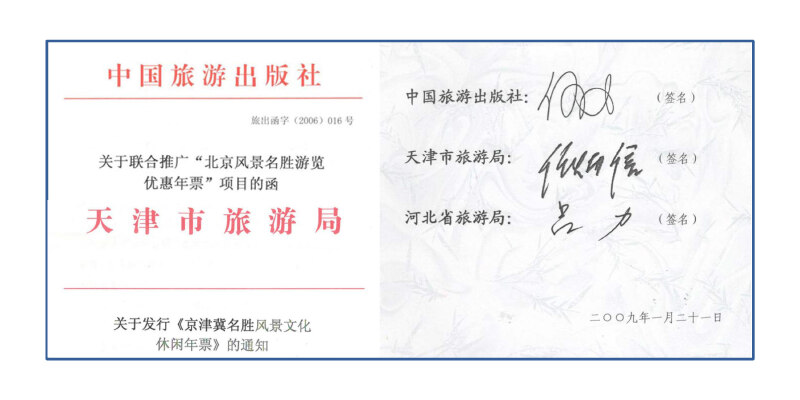 中国旅游出版社
旅出函字（2006）016号
关于联合推广“北京风景名胜游览
优惠年票”项目的函
天津市旅游局
关于发行《京津冀名胜风景文化
休闲年票》的通知
中国旅游出版社：（签名）
天津市旅游局：（签名）
河北省旅游局：吕力（签名）
二〇〇九年一月二十一日